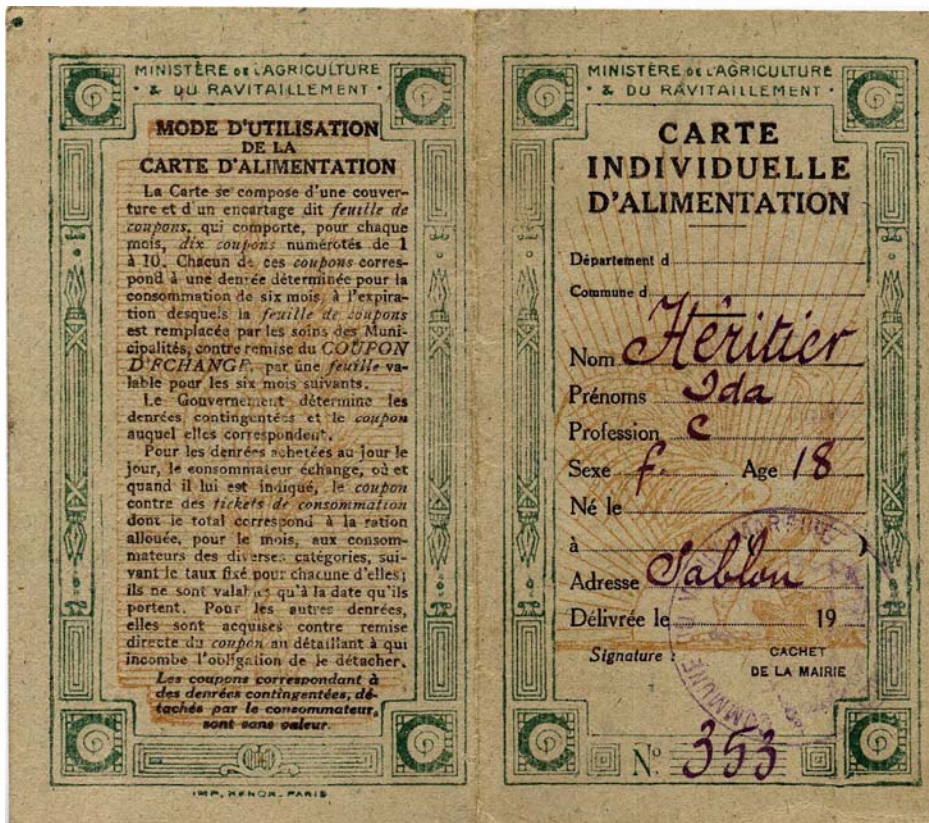 MINISTÈRE DE L'AGRICULTURE
& DU RAVITAILLEMENT
MODE D'UTILISATION
DE LA
CARTE D'ALIMENTATION
La Carte se compose d'une couver-
ture et d'un encartage dit feuille de
coupons, qui comporte, pour chaque
mois, dix coupons numérotés de 1
à 10. Chacun de ces coupons corres-
pond à une denrée déterminée pour la
consommation de six mois, à l'expira-
tion desquels la feuille de coupons
est remplacée par les soins des Muni-
cipalités, contre remise du COUPON
D'ECHANGE, par une feuille va-
lable pour les six mois suivants.
Le Gouvernement détermine les
denrées contingentées et le coupon
auquel elles correspondent.
Pour les denrées achetées au jour le
jour, le consommateur échange, où et
quand il lui est indiqué, le coupon
contre des tickets de consommation
dont le total correspond à la ration
allouée, pour le mois, aux consom-
mateurs des diverses catégories, sui-
vant le taux fixé pour chacune d'elles;
ils ne sont valables qu'à la date qu'ils
portent. Pour les autres denrées,
elles sont acquises contre remise
directe du coupon au détaillant à qui
incombe l'obligation de le détacher.
Les coupons correspondant à
des denrées contingentées, dé-
tachés par le consommateur,
sont sans valeur.
IMP. RENON. PARIS
MINISTÈRE DE L'AGRICULTURE
& DU RAVITAILLEMENT
CARTE
INDIVIDUELLE
D'ALIMENTATION
Département d
Commune d
Nom Héritier
Prénoms Ida
Profession C
Sexe f. Age 18
Né le
à
Adresse Sablon
Délivrée le 19
Signature :
CACHET
DE LA MAIRIE
COMMUNE
Nº 353